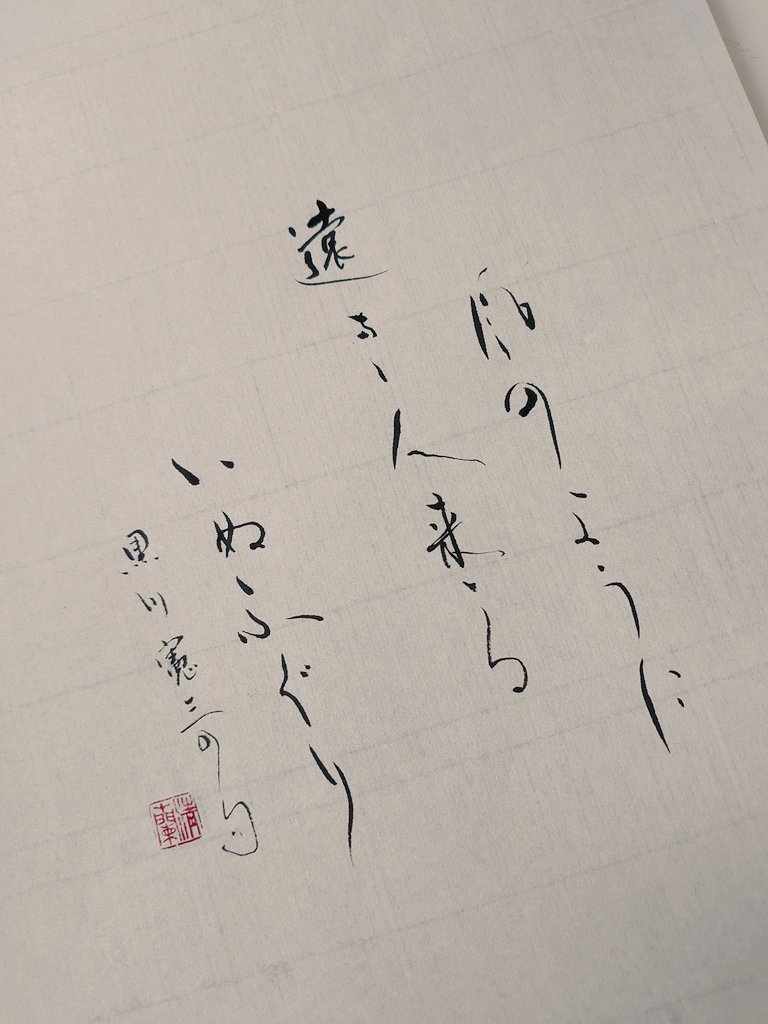 風のように
遠き人来る
いぬふぐり
黒川憲三の句
清蘭